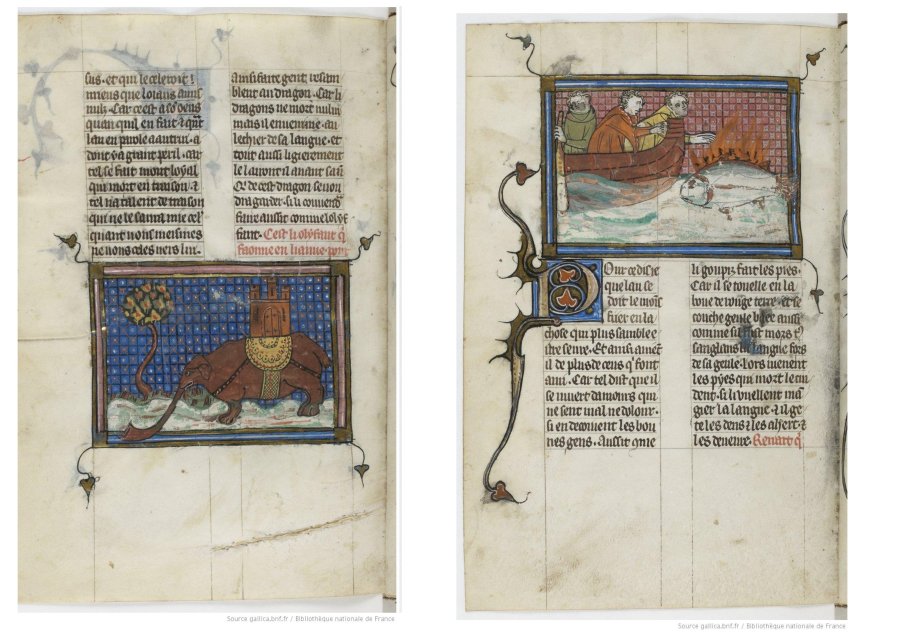 sus. et qui le celeroit
miens que loiaus amis
nulz. Car ce est a
quan quil en fait et
lau en parole a autrui. a
dont y a grant peril. car
tel se fait mout loyal
qui mort en traison. et
tel na talent de traison
qui ne se saura mie cel
quant nous meismes
ne nous celes vers lui.
ainsi faite gent ressam
blent au dragon. Car li
dragons ne mort nului
mais il envenime au
lechier de sa langue. et
tout aussi ligierement
le
Or de cest dragon se von
dra garder. si le convend
faire aussi comme lolyf
fant. Cest li olyfant q
faonne en liaue.
Source gallica.bnf.fr / Bibliothèque nationale de France
Pour ce di je
que lau se
doit le mois
fier en la
chose qui plus samble e
stre seure. Et ainsi avient
il de plus de ceus q font
ami. Car tel dist que il
se muert damours qui
ne sent mal ne dolour.
si en decoivent les bou
nes gens. Aussi que
li goupis fait les pies.
Car il se touelle en la
boue de rouge terre. et se
couche geule baee aussi
comme sil fust mors
sanglans la langue hors
de sa geule. Lors vienent
les pyes qui mort le cui
dent. si li vuellent ma
gier la langue et il gie
te les dens et les ahert. et
les deveure. Renart q
Source gallica.bnf.fr / Bibliothèque nationale de France